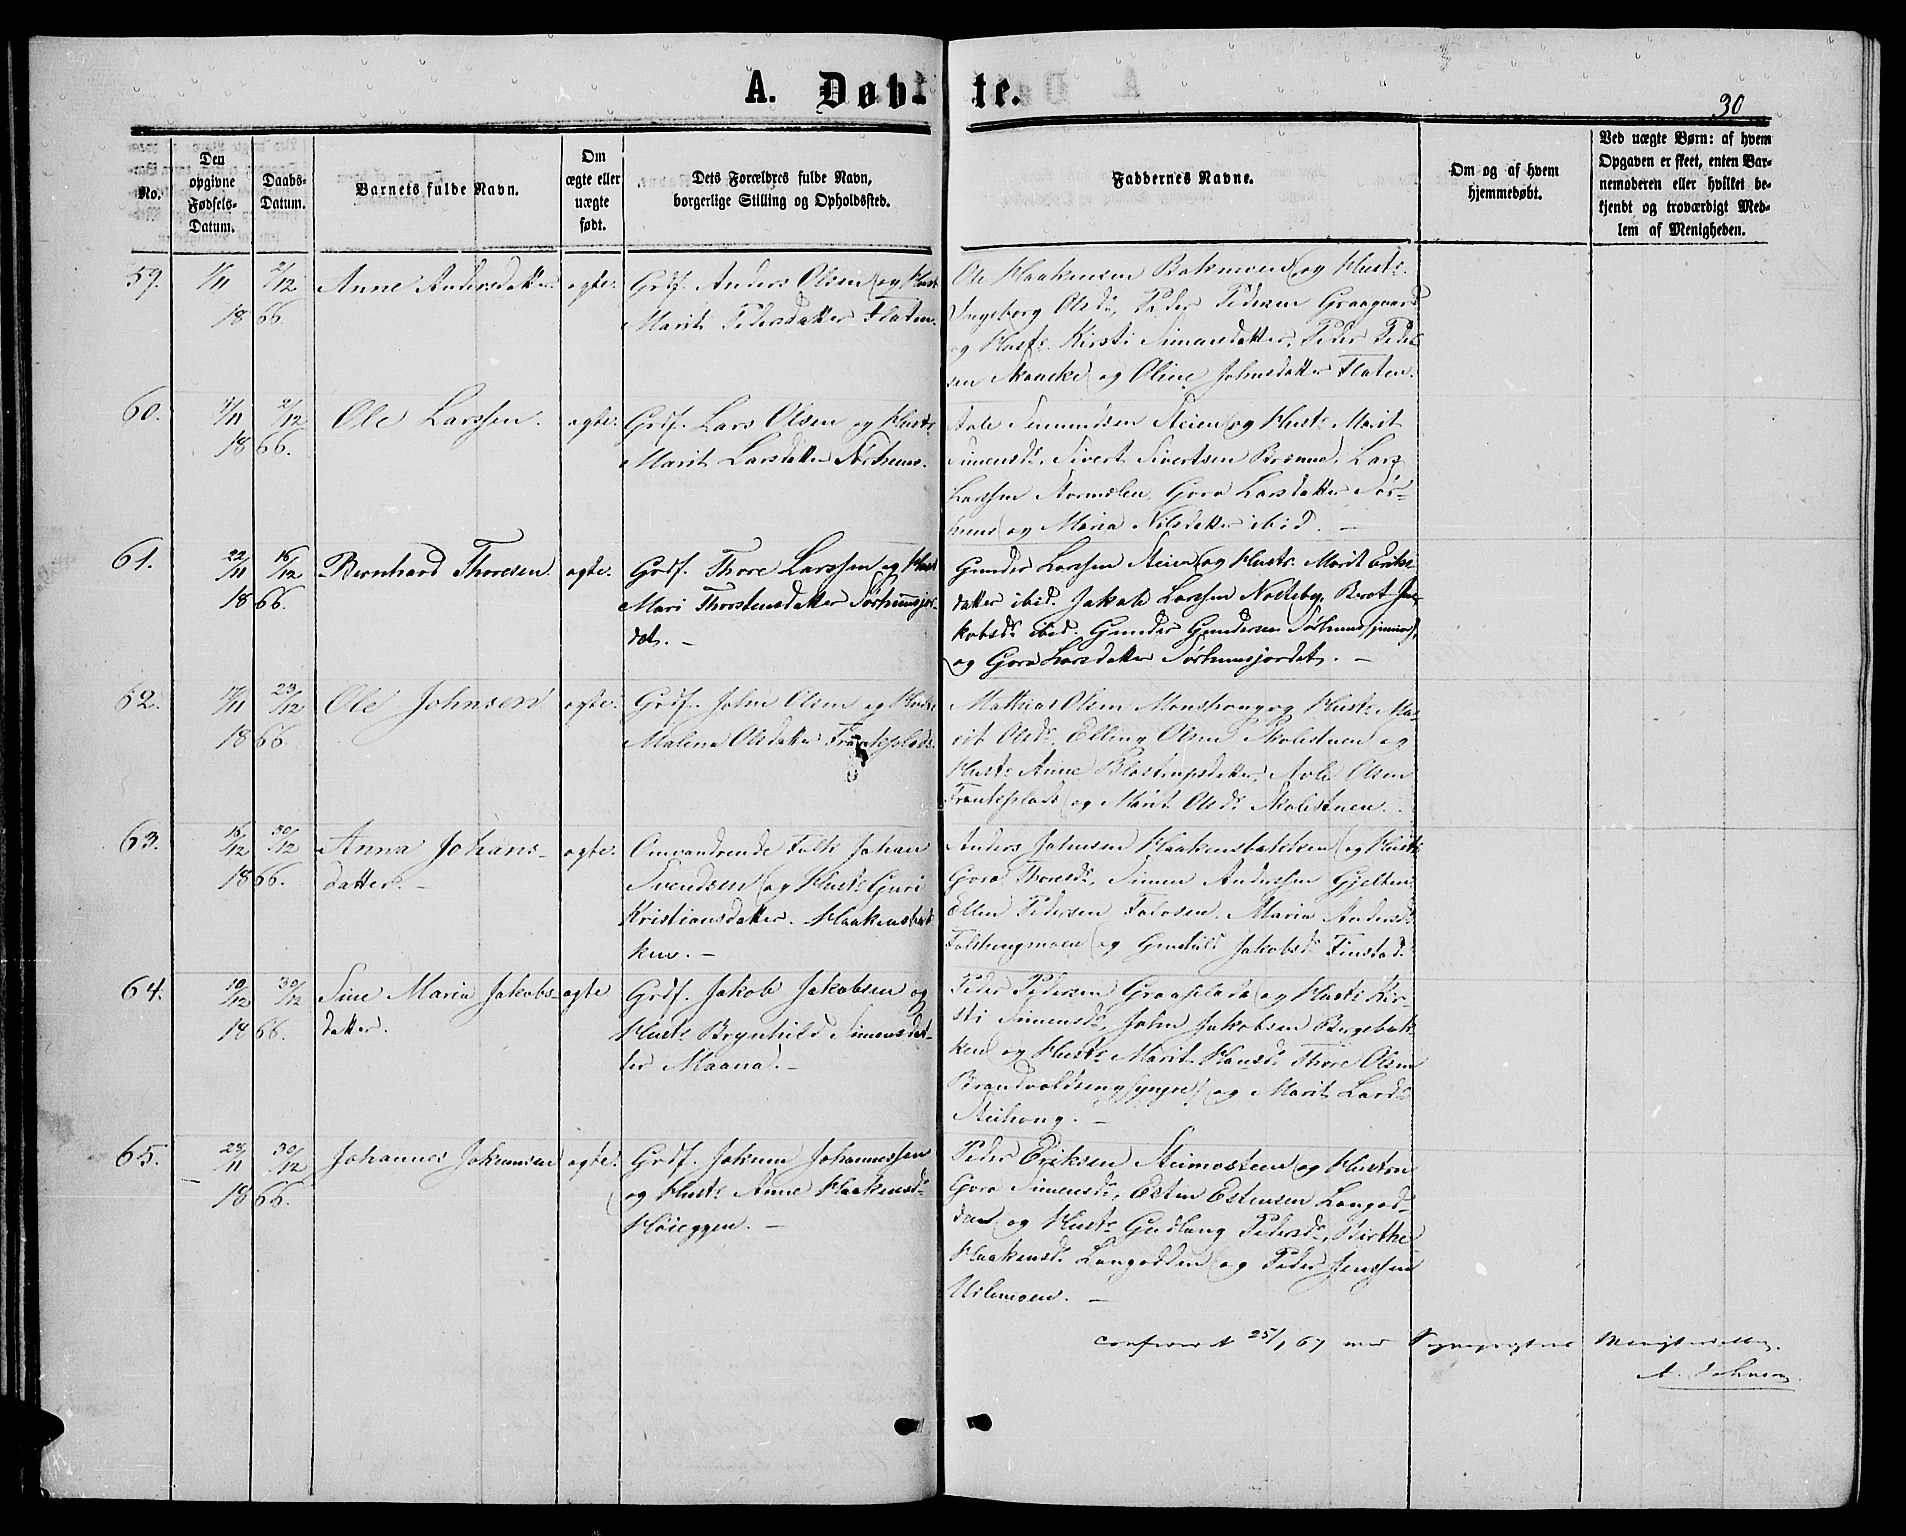 A. Døbte.
30
No.
Den opgivne Fødsels-Datum.
Daabs-Datum.
Barnets fulde Navn.
Om ægte eller uægte født.
Dets Forældres fulde Navn, borgerlige Stilling og Opholdssted.
Faddernes Navne.
Om og af hvem hjemmedøbt.
Ved uægte Børn: af hvem Opgaven er skeet, enten Barnemoderen eller hvilket bekjendt og troværdigt Medlem af Menigheden.
59. 1/11 2/12 Anne Andersdatter ægte. Grdf. Anders Olsen og Hust.
18 66. Marit Pedersdatter Flaten.
Ole Haakensen Bakmoen og Hust.
Ingeborg Olsd., Peder Pedersen Graagaard
og Hust. Kirsti Simensdatter, Peder Peder
sen Skancke og Oline Johnsdatter Flaten.
60. 2/12 Ole Larssen. ægte. Grdf. Lars Olsen og Hust.
18 66. Marit Larsdatter Sørhuus.
Simundsen Steien og Hust. Marit
Simensd., Sivert Sivertsen Brænne, Lars
Larssen Gora Larsdatter Sør-
huus og Maria Nilsdatter ibid. —
61. 22/11 16/12 Bernhard Thoresen. ægte. Grdf. Thore Larssen og Hust
18 66. Mari Thorstensdatter Sørhuusjor-
det. —
Gunder Larssen Steien og Hust. Marit Eriks-
datter ibid. Jakob Larssen Nolteby, Beret Ja-
kobsd. ibid. Gunder Gundersen Sørhuus
og Gora Larsdatter Sørhuusjordet. —
62. 17/11 23/12 Ole Johnsen ægte. Grdf. John Olsen og Hust.
18 66. Malena Olsdatter
Mathias Olsen og Hust. Ma-
rit Olsd. Elling Olsen Skolestuen og
Hust. Anne Olsen
og Marit Olsd. Skolestuen.
63. 16/12 30/12 Anna Johans- ægte. Omvandrende Folk Johan
18 66. datter. — Svendsen og Hust. Guri
Kristiansdatter. Haakenstad
ken. —
Anders Johnsen og Hust.
Gora Thoresd., Simen Anderssen Gjelten
Ellen Pedersen Folosen, Maria Andersd.
og Gunhild Jakobsd. Finstad.
64. 10/12 30/12 Sine Maria Jakobs- ægte Grdf. Jakob Jakobsen og
18 66. datter. Hust. Brynhild Simensdat-
ter Maana. —
Peder Pedersen og Hust. Kir-
sti Simensd., John Jakobsen Bugebak-
ken og Hust. Marit Hansd. Thore Olsen
Brandvoldseng (yngre) og Marit Larsd.
Steihaug. —
65. 28/11 30/12 Johannes Jokumsen ægte. Grdf. Jokum Johannessen
18 66. og Hust. Anne Haakensd.
Høieggen. —
Peder Eriksen Steimosteen og Hustru
Gora Simensd., Esten Estensen Langod-
den og Hust. Gudlaug Pedersd., Birthe
Haakensd. Langodden og Peder Jenssen
Urlemoen. —
Confereret 25/1 67 med Menighedens
A. Johnsen